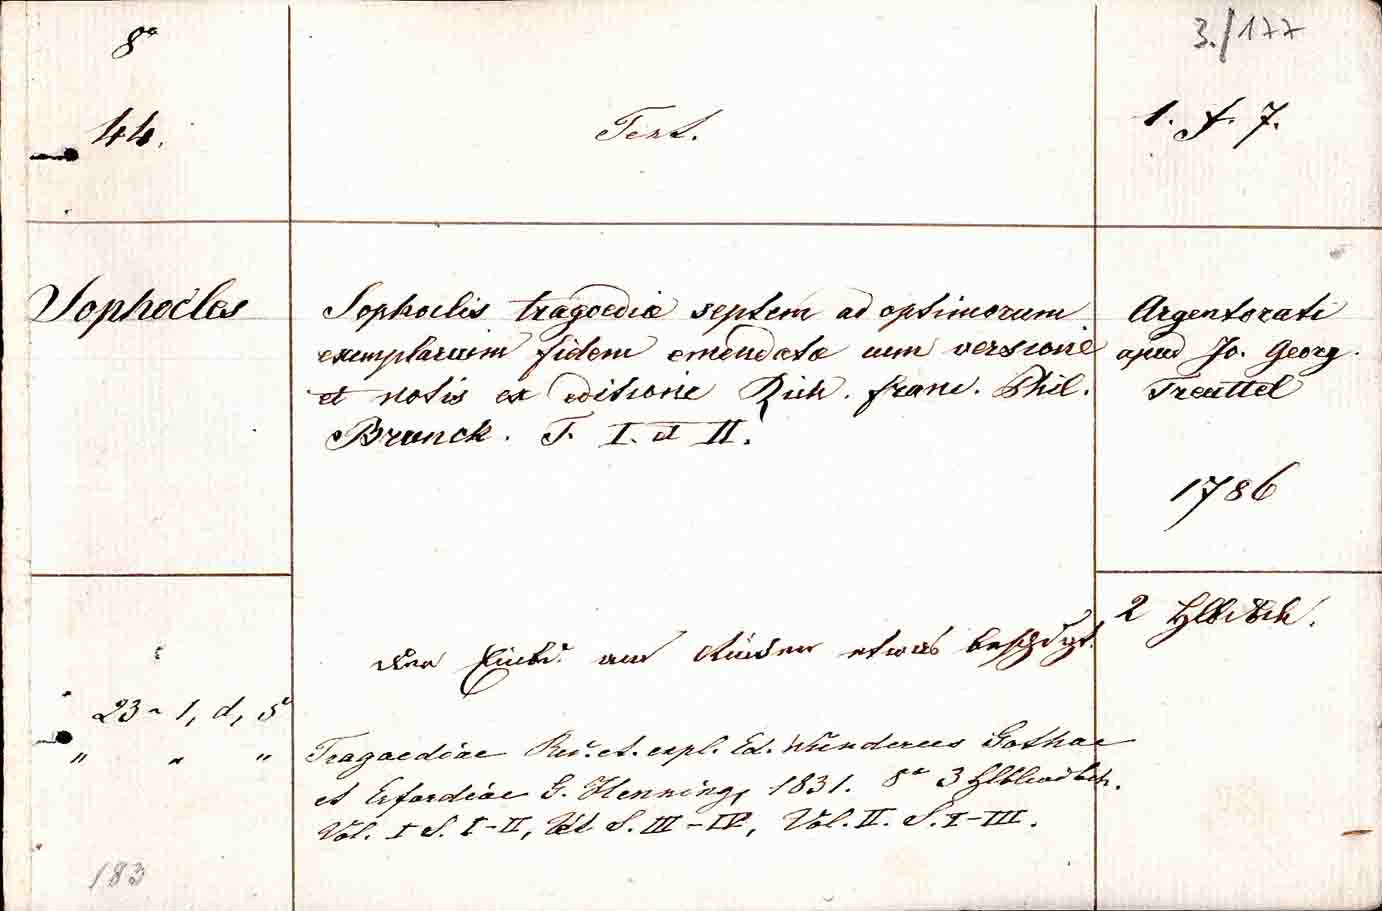 8°
3./177
44.
Text.
1. A. 7.
Sophocles
Sophoclis tragoediæ septem ad optimorum
exemplarium fidem emendatæ cum versione
et notis ex editione Rich. franc. Phil.
Brunck. T. I. et II.
Argentorati
apud Jo. Georg.
Treuttel
1786
2 Hlbdbch.
Der Einbd. am Rücken etwas beschägt.
23-1, d, 5
" " "
Tragaediae Rec. et. expl. Ed. Wunderus Gothae
et Erfordiae G. Hennings 1831. 8° 3
Vol. I S. I-II, S. III-IV, Vol. II. S. I-III.
183